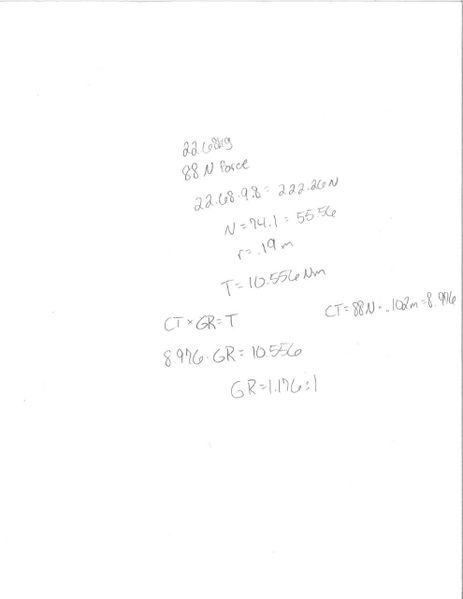 22.68kg
88 N force
22.68·9.8= 222.26N
N=74.1 = 55.56
r=.19m
T=10.556Nm
CT×GR=T
CT=88N·.102m=8.976
8.976·GR=10.556
GR=1.176:1